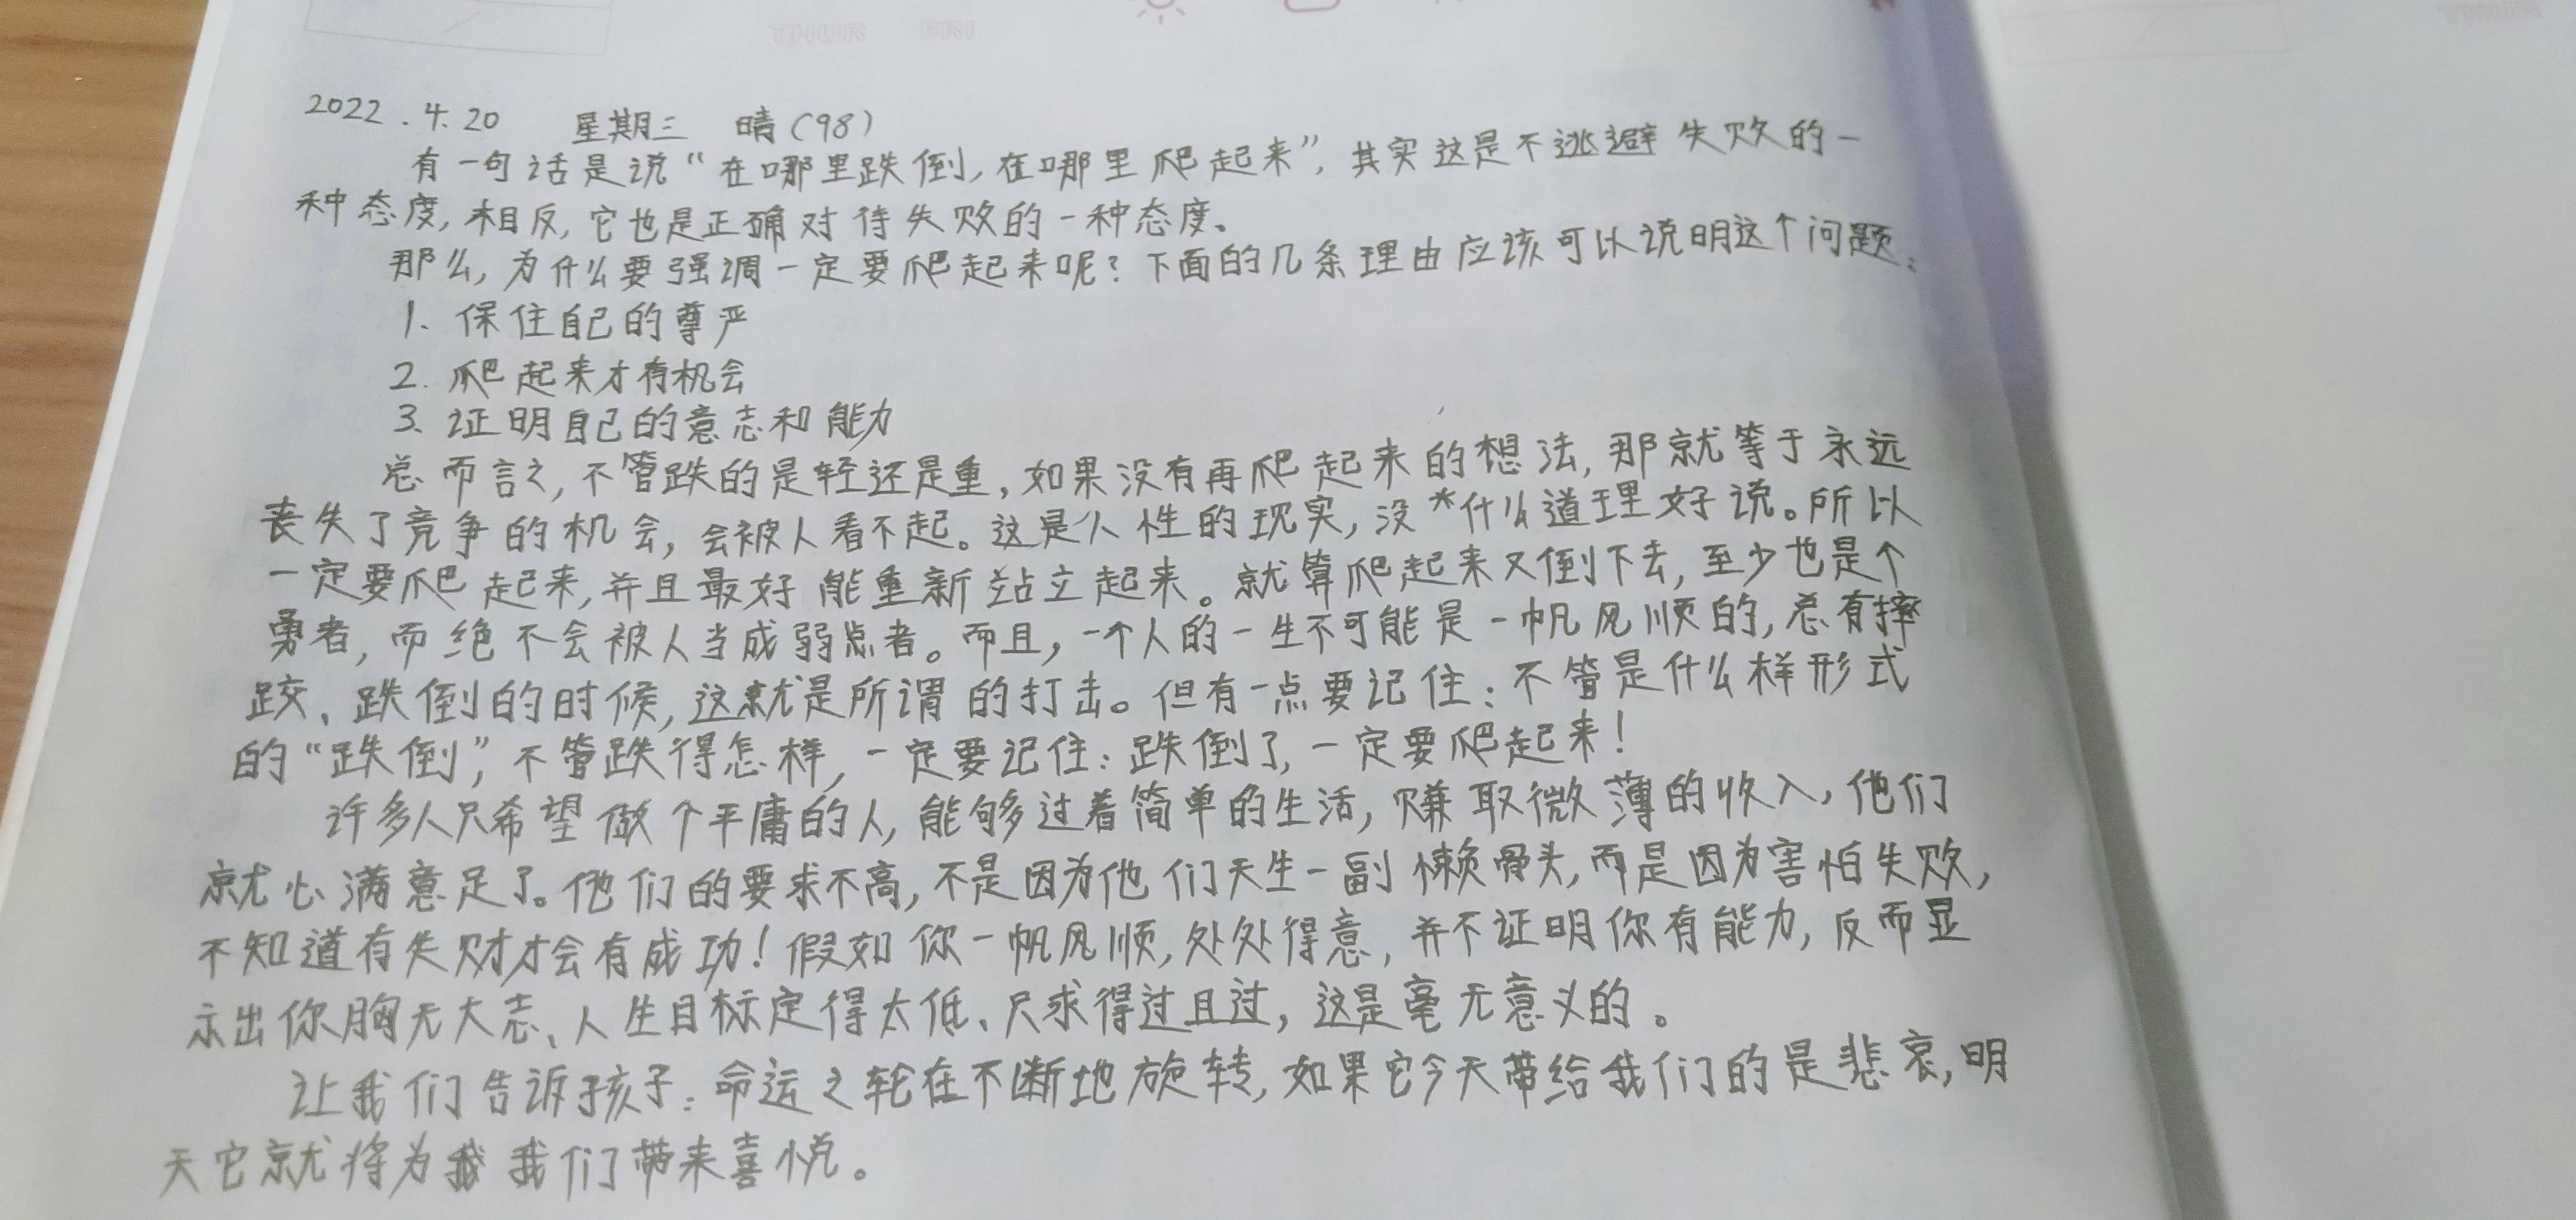 THUR FRI
2022.4.20 星期三 晴(98)
有一句话是说“在哪里跌倒,在哪里爬起来”,其实这是不逃避失败的一
种态度,相反,它也是正确对待失败的一种态度。
那么,为什么要强调一定要爬起来呢?下面的几条理由应该可以说明这个问题:
1、保住自己的尊严
2. 爬起来才有机会
3、证明自己的意志和能力
总而言之,不管跌的是轻还是重,如果没有再爬起来的想法,那就等于永远
丧失了竞争的机会,会被人看不起。这是人性的现实,没什么道理好说。所以
一定要爬起来,并且最好能重新站立起来。就算爬起来又倒下去,至少也是个
勇者,而绝不会被人当成弱点者。而且,一个人的一生不可能是一帆风顺的,总有摔
跤、跌倒的时候,这就是所谓的打击。但有一点要记住:不管是什么样形式
的“跌倒”,不管跌得怎样,一定要记住:跌倒了,一定要爬起来!
许多人只希望做个平庸的人,能够过着简单的生活,赚取微薄的收入,他们
就心满意足了。他们的要求不高,不是因为他们天生一副懒骨头,而是因为害怕失败,
不知道有失财才会有成功!假如你一帆风顺,处处得意,并不证明你有能力,反而显
示出你胸无大志、人生目标定得太低、只求得过且过,这是毫无意义的。
让我们告诉孩子:命运之轮在不断地旋转,如果它今天带给我们的是悲哀,明
天它就将为我们带来喜悦。